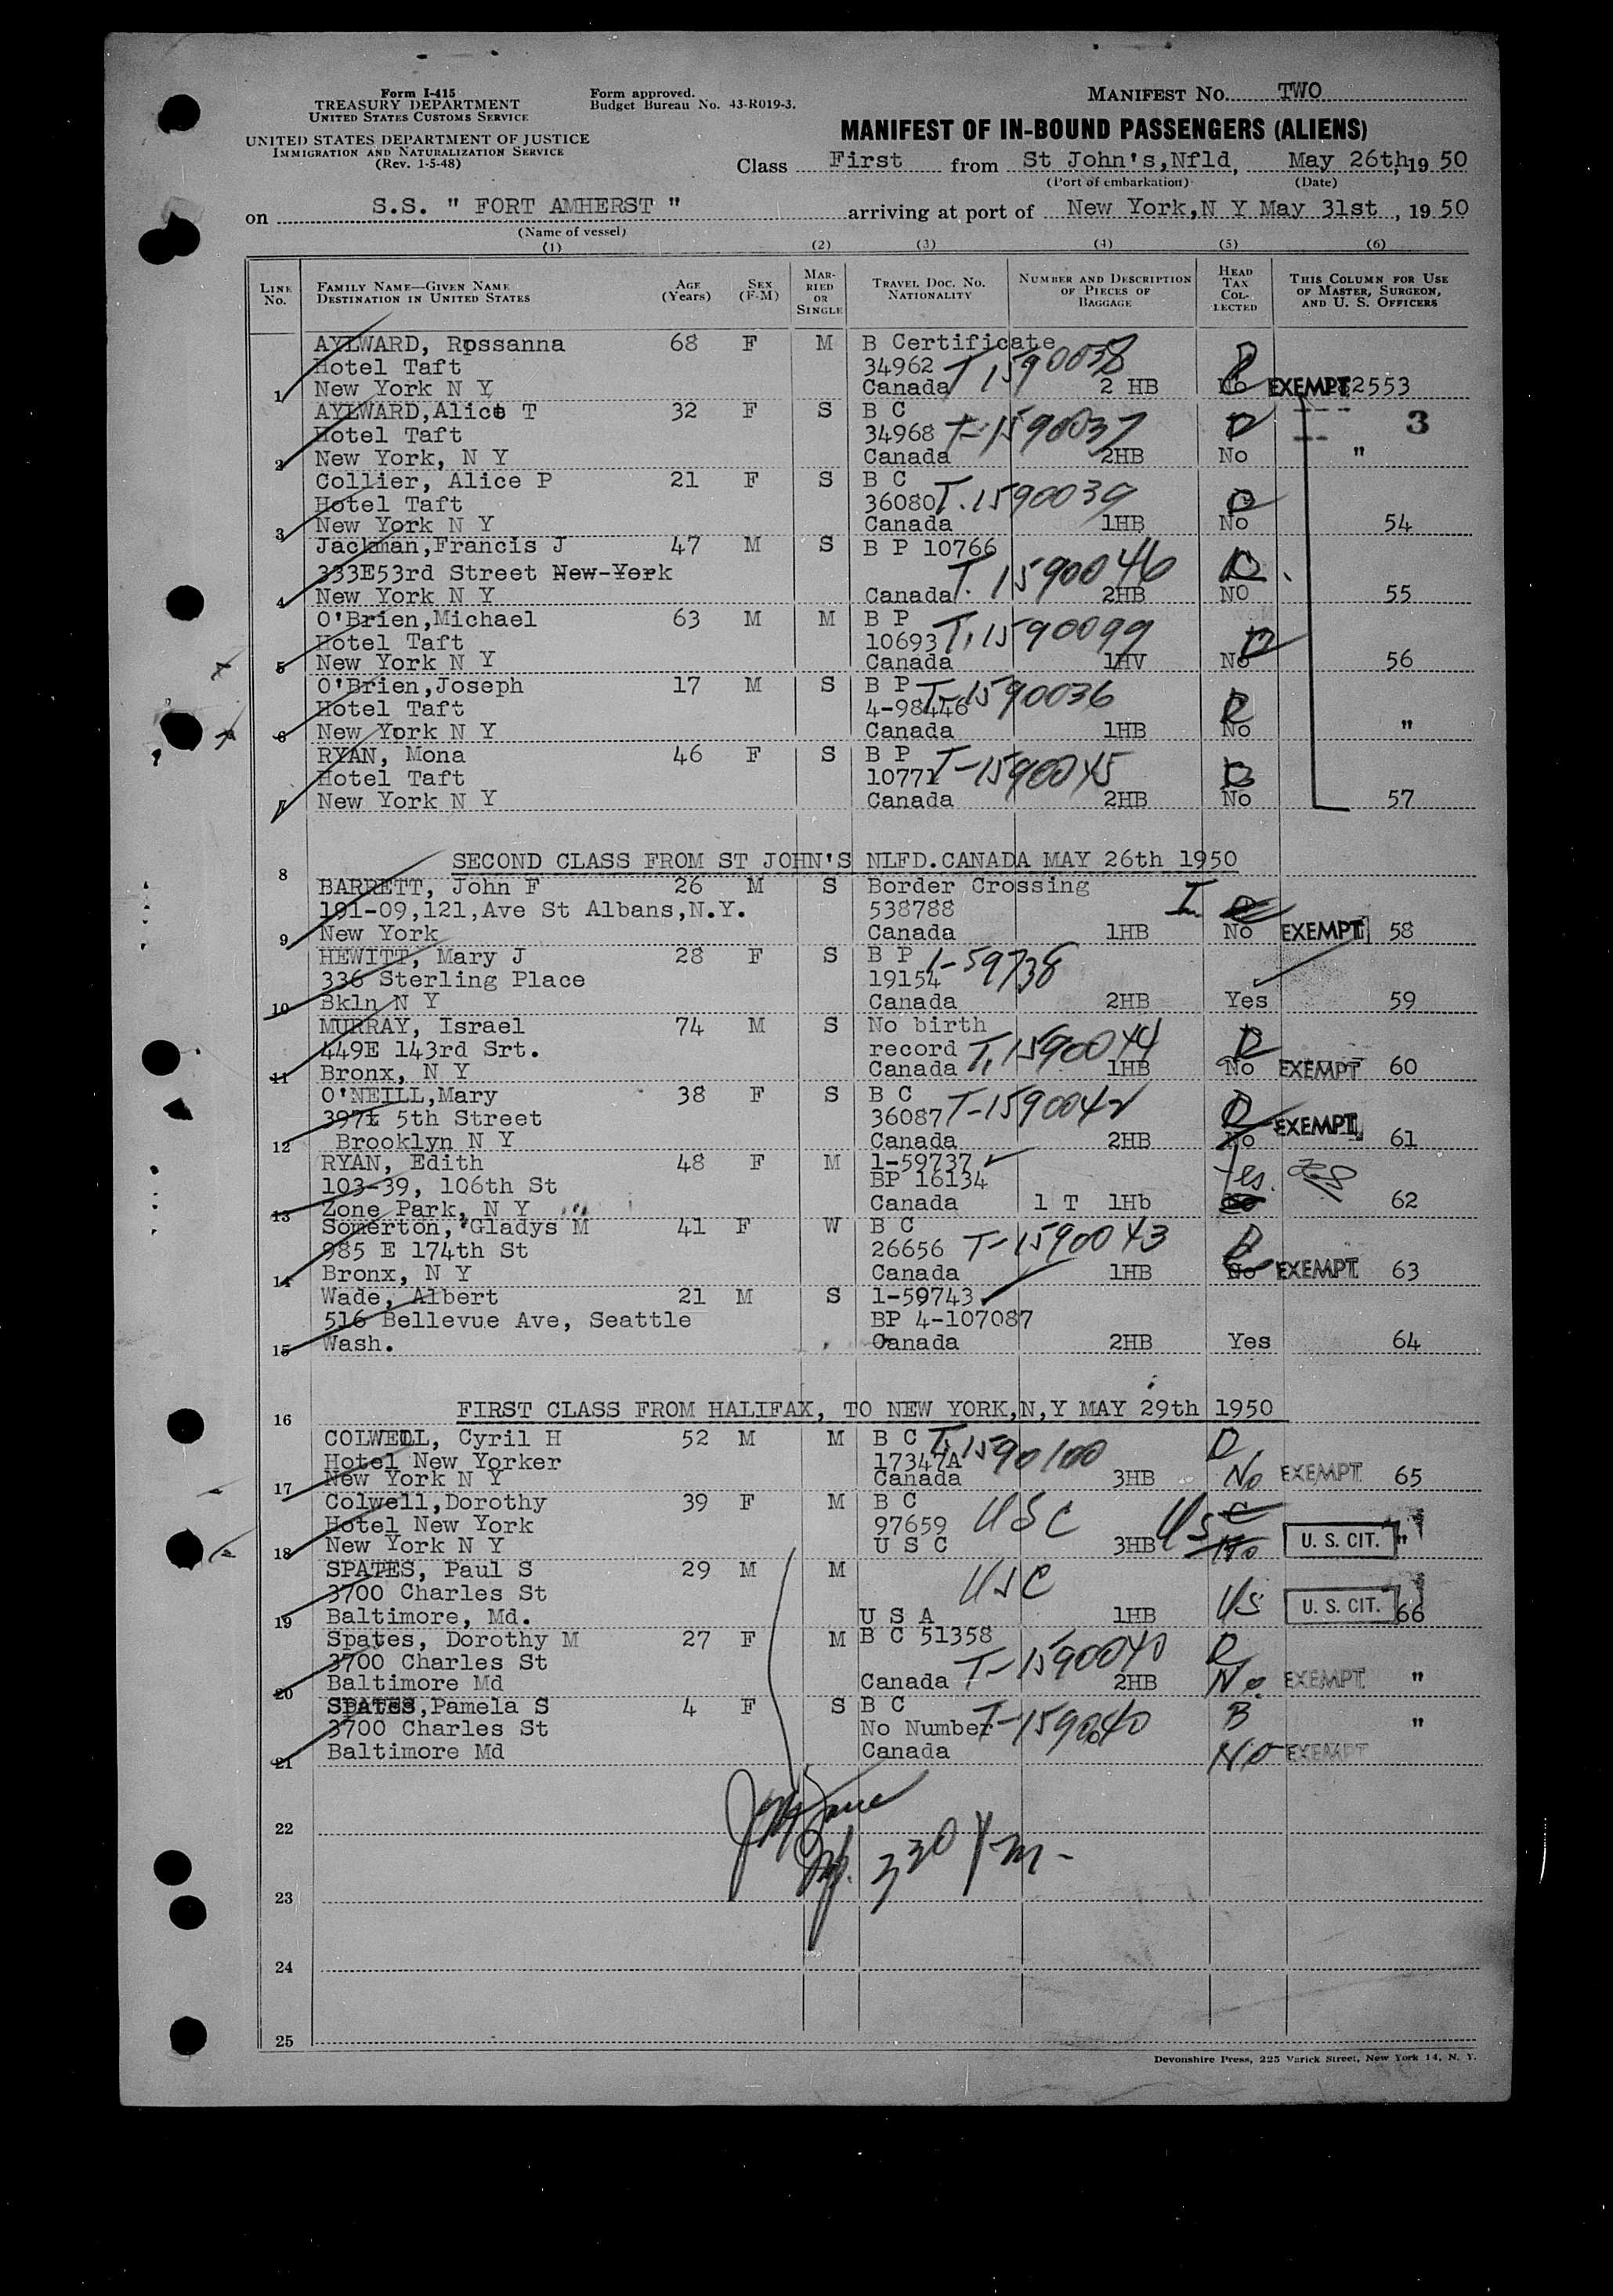 Form I-415
TREASURY DEPARTMENT
UNITED STATES CUSTOMS SERVICE
UNITED STATES DEPARTMENT OF JUSTICE
IMMIGRATION AND NATURALIZATION SERVICE
(Rev. 1-5-48)
Form approved.
Budget Bureau No. 43-R019-3.
MANIFEST NO. TWO
MANIFEST OF IN-BOUND PASSENGERS (ALIENS)
Class First from St John's,Nfld, May 26th,19 50
(Port of embarkation) (Date)
on S.S. " FORT AMHERST " arriving at port of New York,N Y May 31st , 19 50
(Name of vessel)
(1) (2) (3) (4) (5) (6)
LINE No. FAMILY NAME—GIVEN NAME DESTINATION IN UNITED STATES AGE (Years) SEX (F-M) MARRIED OR SINGLE TRAVEL DOC. NO. NATIONALITY NUMBER AND DESCRIPTION OF PIECES OF BAGGAGE HEAD TAX COLLECTED THIS COLUMN FOR USE OF MASTER, SURGEON, AND U. S. OFFICERS
AYLWARD, Rossanna 68 F M B Certificate
Hotel Taft 34962 T, 1590038
1 New York N Y Canada 2 HB No EXEMPT 282553
AYLWARD,Alice T 32 F S B C
Hotel Taft 34968 T-1590037 3
2 New York, N Y Canada 2HB No "
Collier, Alice P 21 F S B C
Hotel Taft 36080 T.1590039
3 New York N Y Canada 1HB No 54
Jackman,Francis J 47 M S B P 10766
333E53rd Street New-York T. 1590046
4 New York N Y Canada 2HB NO 55
O'Brien,Michael 63 M M B P
Hotel Taft 10693 T,1590099
5 New York N Y Canada 1HV No 56
O'Brien,Joseph 17 M S B P T-1590036
Hotel Taft 4-98446
6 New York N Y Canada 1HB No "
RYAN, Mona 46 F S B P
Hotel Taft 10771 T-1590045
7 New York N Y Canada 2HB No 57
8 SECOND CLASS FROM ST JOHN'S NLFD.CANADA MAY 26th 1950
BARRETT, John F 26 M S Border Crossing
191-09,121,Ave St Albans,N.Y. 538788
9 New York Canada 1HB No EXEMPT 58
HEWITT, Mary J 28 F S B P 1-59738
336 Sterling Place 19154
10 Bkln N Y Canada 2HB Yes 59
MURRAY, Israel 74 M S No birth
449E 143rd Srt. record T,1590044
11 Bronx, N Y Canada 1HB No EXEMPT 60
O'NEILL,Mary 38 F S B C
397½ 5th Street 36087 T-1590042
12 Brooklyn N Y Canada 2HB No EXEMPT 61
RYAN, Edith 48 F M 1-59737
103-39, 106th St BP 16134 Yes.
13 Zone Park, N Y Canada 1 T 1Hb No 62
Somerton, Gladys M 41 F W B C
985 E 174th St 26656 T-1590043
14 Bronx, N Y Canada 1HB No EXEMPT 63
Wade, Albert 21 M S 1-59743
516 Bellevue Ave, Seattle BP 4-107087
15 Wash. Canada 2HB Yes 64
16 FIRST CLASS FROM HALIFAX, TO NEW YORK,N,Y MAY 29th 1950
COLWELL, Cyril H 52 M M B C T,1590100
Hotel New Yorker 17347A
17 New York N Y Canada 3HB No EXEMPT 65
Colwell,Dorothy 39 F M B C
Hotel New York 97659 USC USC
18 New York N Y U S C 3HB No U. S. CIT. "
SPATES, Paul S 29 M M
3700 Charles St USC
19 Baltimore, Md. U S A 1HB US U. S. CIT. 66
Spates, Dorothy M 27 F M B C 51358
3700 Charles St T-1590040
20 Baltimore Md Canada 2HB No. EXEMPT "
SPATES,Pamela S 4 F S B C
3700 Charles St No Number T-1590040 "
21 Baltimore Md Canada No EXEMPT
22
330 P.m-
23
24
25
Devonshire Press, 225 Varick Street, New York 14, N. Y.